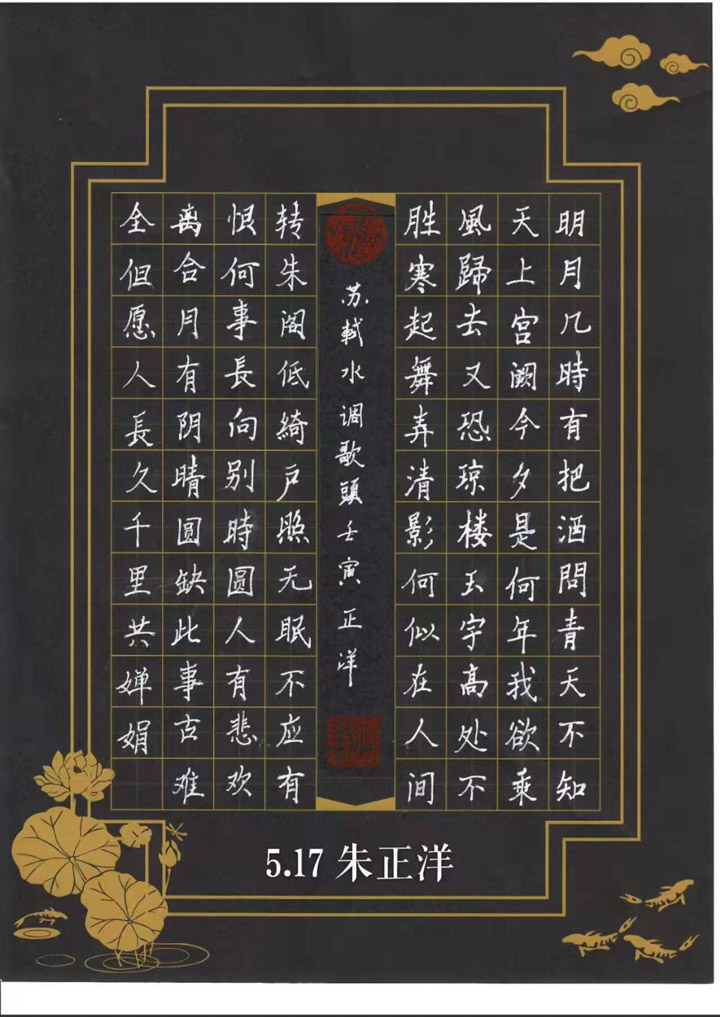 明月几時有把酒問青天不知
天上宫阙今夕是何年我欲乘
風歸去又恐琼楼玉宇高处不
胜寒起舞弄清影何似在人间
苏轼水调歌頭壬寅正洋
转朱阁低綺户照无眠不应有
恨何事長向别時圆人有悲欢
离合月有阴晴圆缺此事古难
全但愿人長久千里共婵娟
5.17 朱正洋